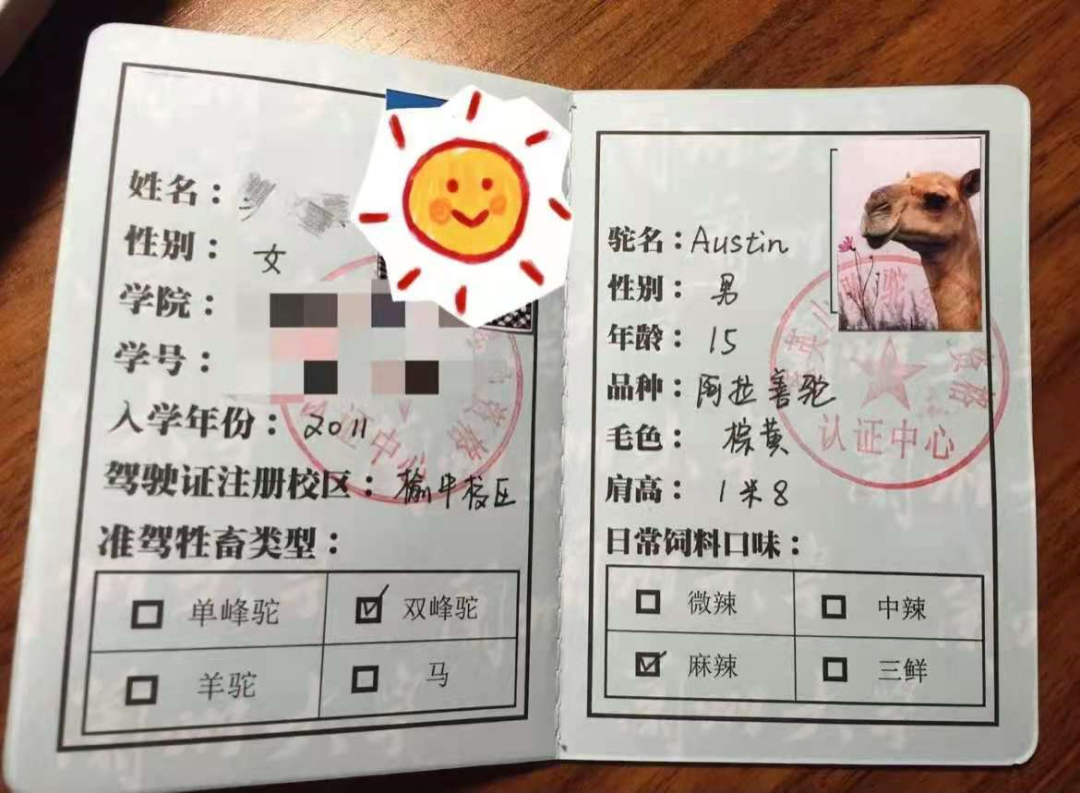 姓名：
性别：女
学院：
学号：
入学年份：2011
驾驶证注册校区：榆中校区
准驾牲畜类型：
单峰驼 双峰驼
羊驼 马
资格
认证中心
驼名：Austin
性别：男
年龄：15
品种：阿拉善驼
毛色：棕黄
肩高：1米8
日常饲料口味：
微辣 中辣
麻辣 三鲜
资格
认证中心